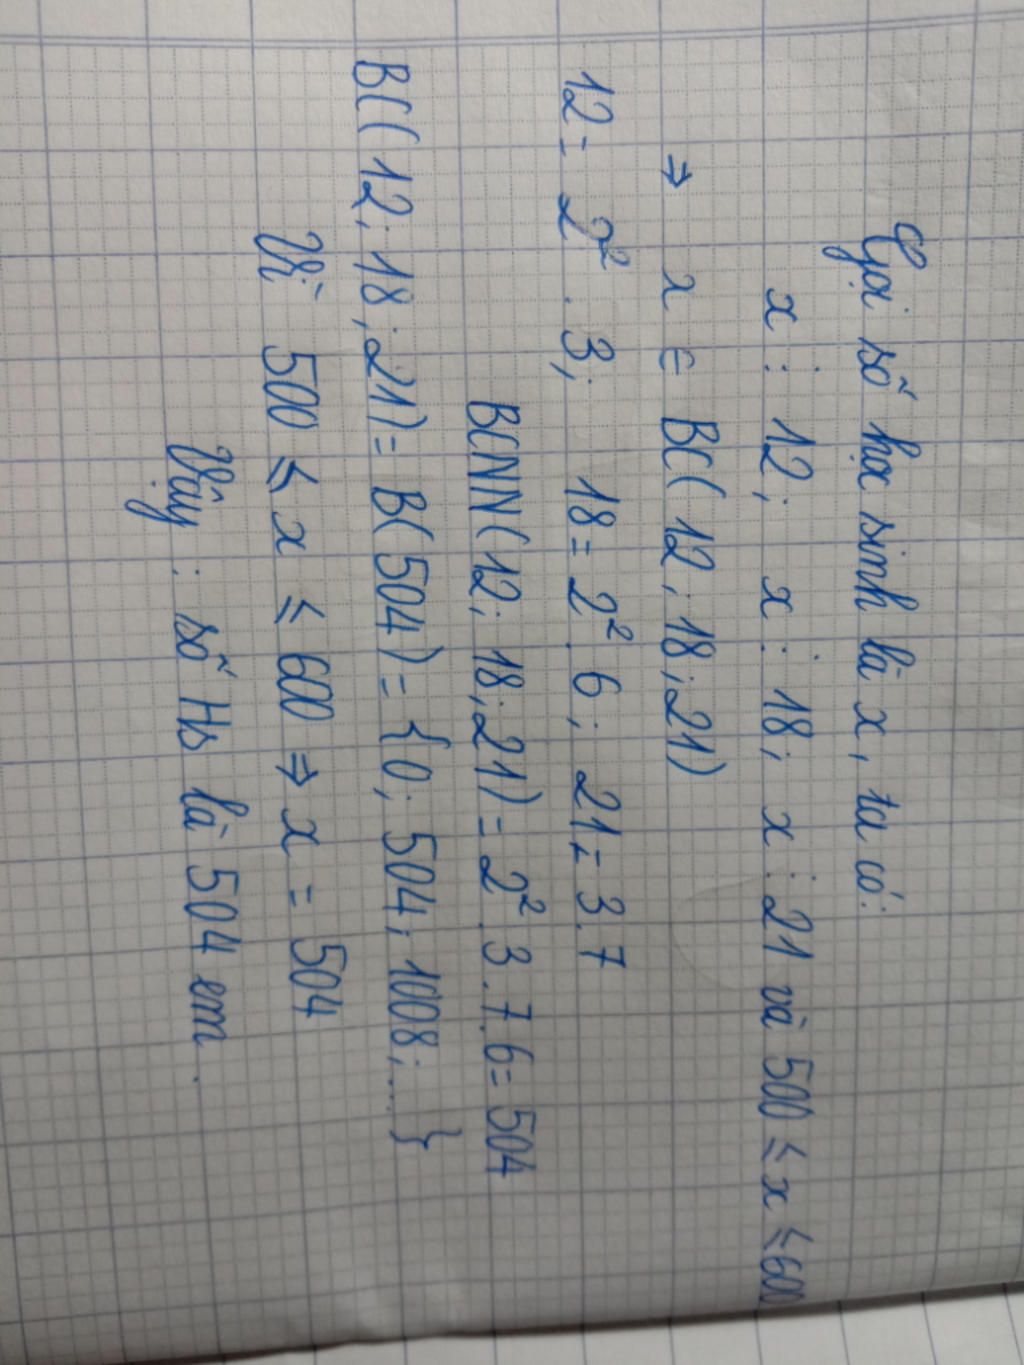 Gọi số học sinh là x, ta có:
x ⋮ 12; x ⋮ 18; x ⋮ 21 và 500 ≤ x ≤ 600
⇒ x ∈ BC(12; 18; 21)
12 = 2² . 3; 18 = 2² . 6; 21 = 3.7
BCNN(12; 18; 21) = 2² . 3 . 7 . 6 = 504
BC(12; 18; 21) = B(504) = {0; 504; 1008; ...}
Vì 500 ≤ x ≤ 600 ⇒ x = 504
Vậy : số Hs là 504 em.